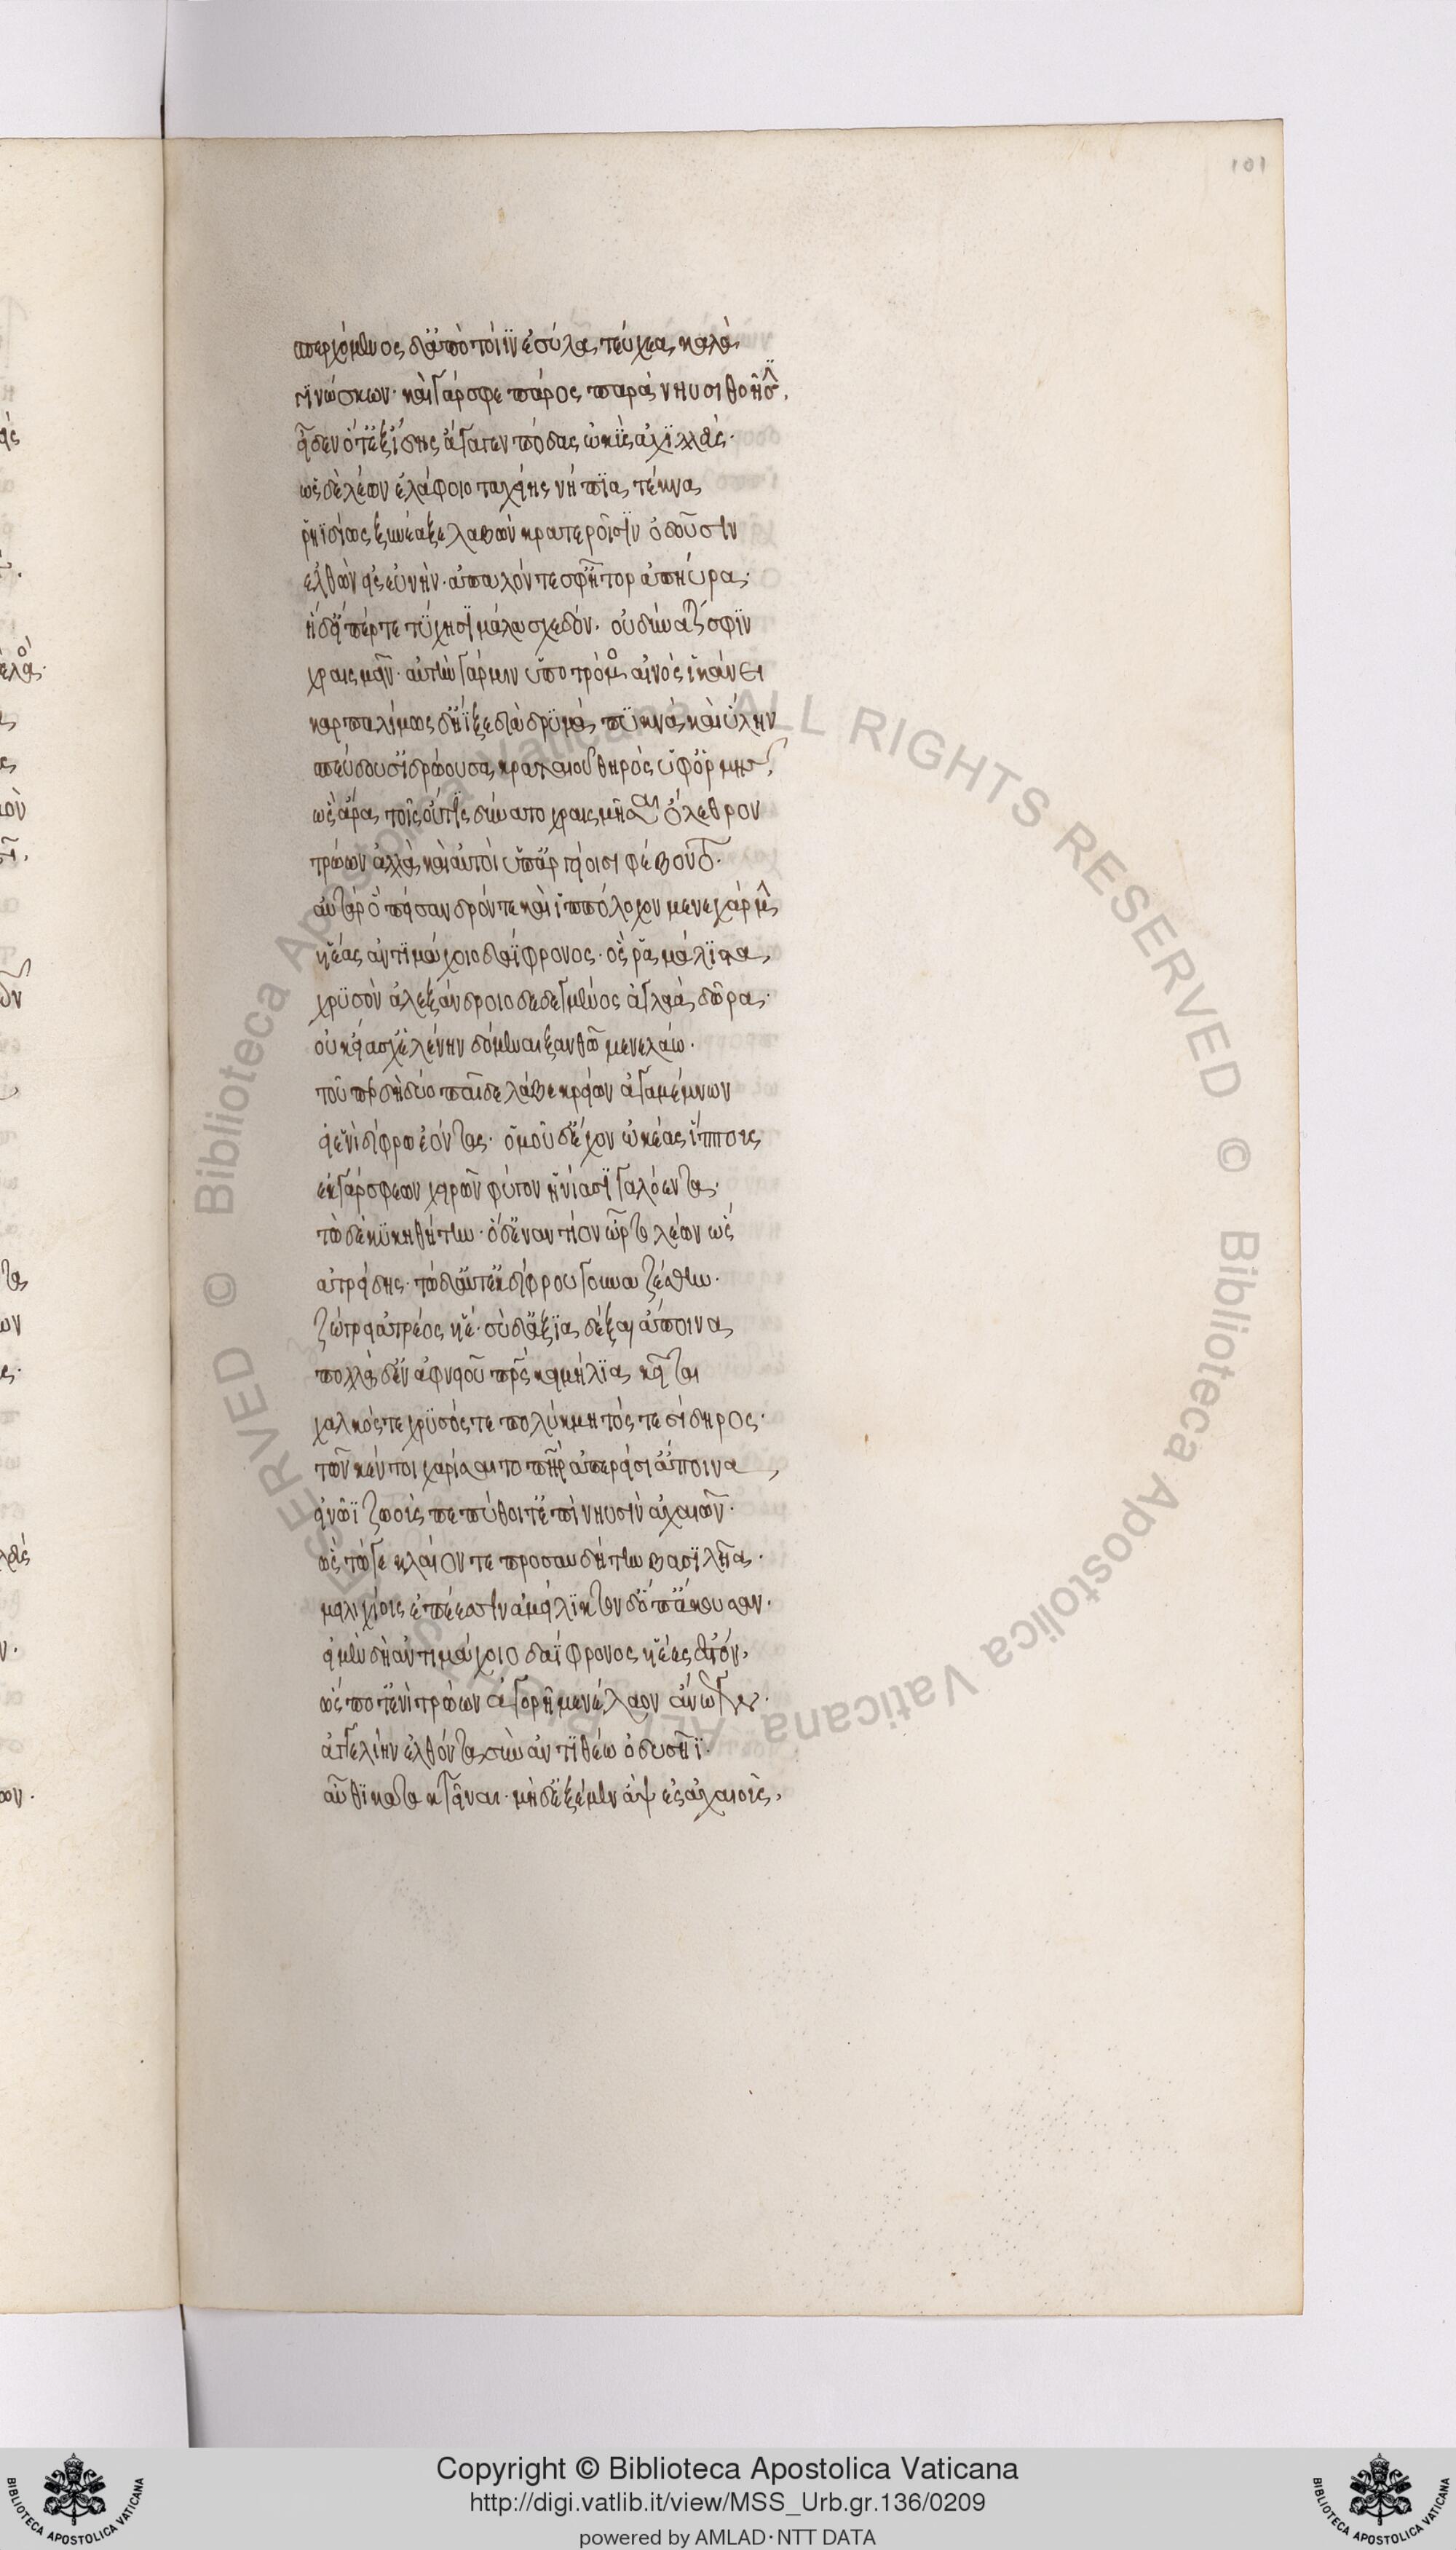 101
σπερχόμενος δ' ἀπὸ τοῖϊν ἐσύλα τεύχεα καλὰ
γινώσκων· καὶ γάρ σφε πάρος παρὰ νηυσὶ θοῇσιν
εἶδεν ὅτ' ἐξ ἴδης ἄγαγεν πόδας ὠκὺς ἀχιλλεύς·
ὡς δὲ λέων ἐλάφοιο ταχείης νήπια τέκνα
ῥηϊδίως ξυνέαξε λαβὼν κρατεροῖσιν ὀδοῦσιν
ἐλθὼν εἰς εὐνήν· ἁπαλόν τέ σφ' ἦτορ ἀπηύρα·
ἡ δ' εἴπερ τε τύχησι μάλα σχεδόν· οὐ δύναταί σφιν
χραισμεῖν· αὐτὴν γάρ μιν ὑπὸ τρόμος αἰνὸς ἱκάνει
καρπαλίμως δ' ἤϊξε διὰ δρυμὰ πυκνὰ καὶ ὕλην
σπεύδουσ' ἱδρώουσα κραταιοῦ θηρὸς ὑφ' ὁρμῆς
ὣς ἄρα τοῖς οὔτις δύνατο χραισμῆσαι ὄλεθρον
τρώων ἀλλὰ καὶ αὐτοὶ ὑπ' ἀργείοισι φέβοντο·
αὐτὰρ ὁ πείσανδρόν τε καὶ ἱππόλοχον μενεχάρμην
υἱέας ἀντιμάχοιο δαΐφρονος· ὅς ῥα μάλιστα
χρυσὸν ἀλεξάνδροιο δεδεγμένος ἀγλαὰ δῶρα·
οὐκ εἴασχ' ἑλένην δόμεναι ξανθῷ μενελάῳ·
τοῦ περ δὴ δύο παῖδε λάβε κρείων ἀγαμέμνων
εἰν ἑνὶ δίφρῳ ἐόντας· ὁμοῦ δ' ἔχον ὠκέας ἵππους
ἐκ γάρ σφεων χειρῶν φύγον ἡνία σιγαλόεντα·
τὼ δὲ κυκηθήτην· ὁ δ' ἐναντίον ὦρτο λέων ὣς
ἀτρείδης· τὼ δ' αὖτ' ἐκ δίφρου γουναζέσθην·
ζώγρει ἀτρέος υἱέ· σὺ δ' ἄξια δέξαι ἄποινα
πολλὰ δ' ἐν ἀφνειοῦ πατρὸς κειμήλια κεῖται
χαλκός τε χρυσός τε πολύκμητός τε σίδηρος·
τῶν κέν τοι χαρίσαιτο πατὴρ ἀπερείσι' ἄποινα
εἰ νῶϊ ζωοὺς πεπύθοιτ' ἐπὶ νηυσὶν ἀχαιῶν·
ὣς τώ γε κλαίοντε προσαυδήτην βασιλῆα·
μειλιχίοις ἐπέεσσιν ἀμείλικτον δ' ὄπ' ἄκουσαν·
εἰ μὲν δὴ ἀντιμάχοιο δαΐφρονος υἱέες ἐστόν·
ὅς ποτ' ἐνὶ τρώων ἀγορῇ μενέλαον ἄνωγεν·
ἀγγελίην ἐλθόντα σὺν ἀντιθέῳ ὀδυσῆϊ·
αὖθι κατακτεῖναι· μὴ δ' ἐξέμεν ἂψ ἐς ἀχαιούς·
© Biblioteca Apostolica Vaticana ALL RIGHTS RESERVED
© Biblioteca Apostolica Vaticana ALL RIGHTS RESERVED
Copyright © Biblioteca Apostolica Vaticana
http://digi.vatlib.it/view/MSS_Urb.gr.136/0209
powered by AMLAD·NTT DATA
BIBLIOTECA APOSTOLICA VATICANA
BIBLIOTECA APOSTOLICA VATICANA